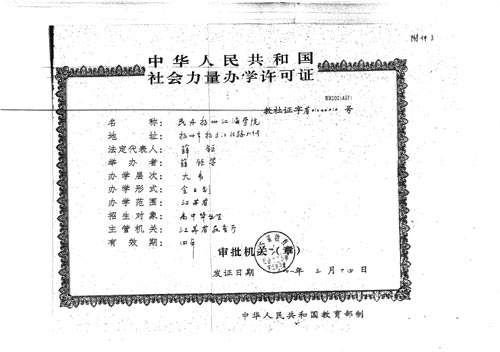 附件3
中华人民共和国
社会力量办学许可证
教社证字 号
名称: 民办扬州江海学院
地址: 扬州市
法定代表人: 薛
举办者: 薛
办学层次: 大专
办学形式: 全日制
办学范围: 江苏省
招生对象: 高中毕业生
主管机关: 江苏省教育厅
有效期: 四年
审批机关(章)
发证日期 年 月 日
中华人民共和国教育部制